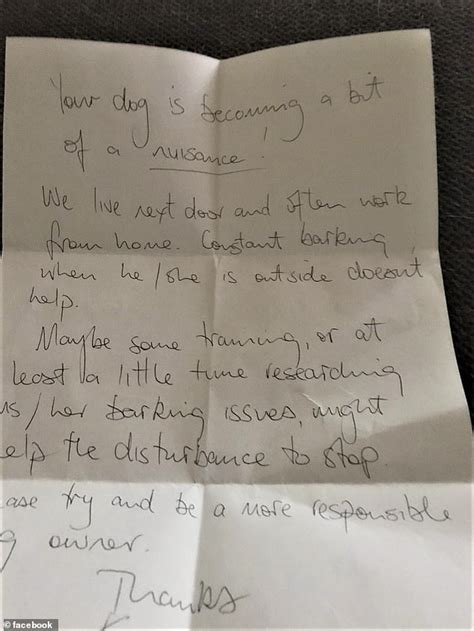 Your dog is becoming a bit
of a nuisance!
We live next door and often work
from home. Constant barking
when he/she is outside doesn't
help.
Maybe some training, or at
least a little time researching
is/her barking issues, might
elp the disturbance to stop.
ase try and be a more responsible
g owner.
Thanks
© facebook